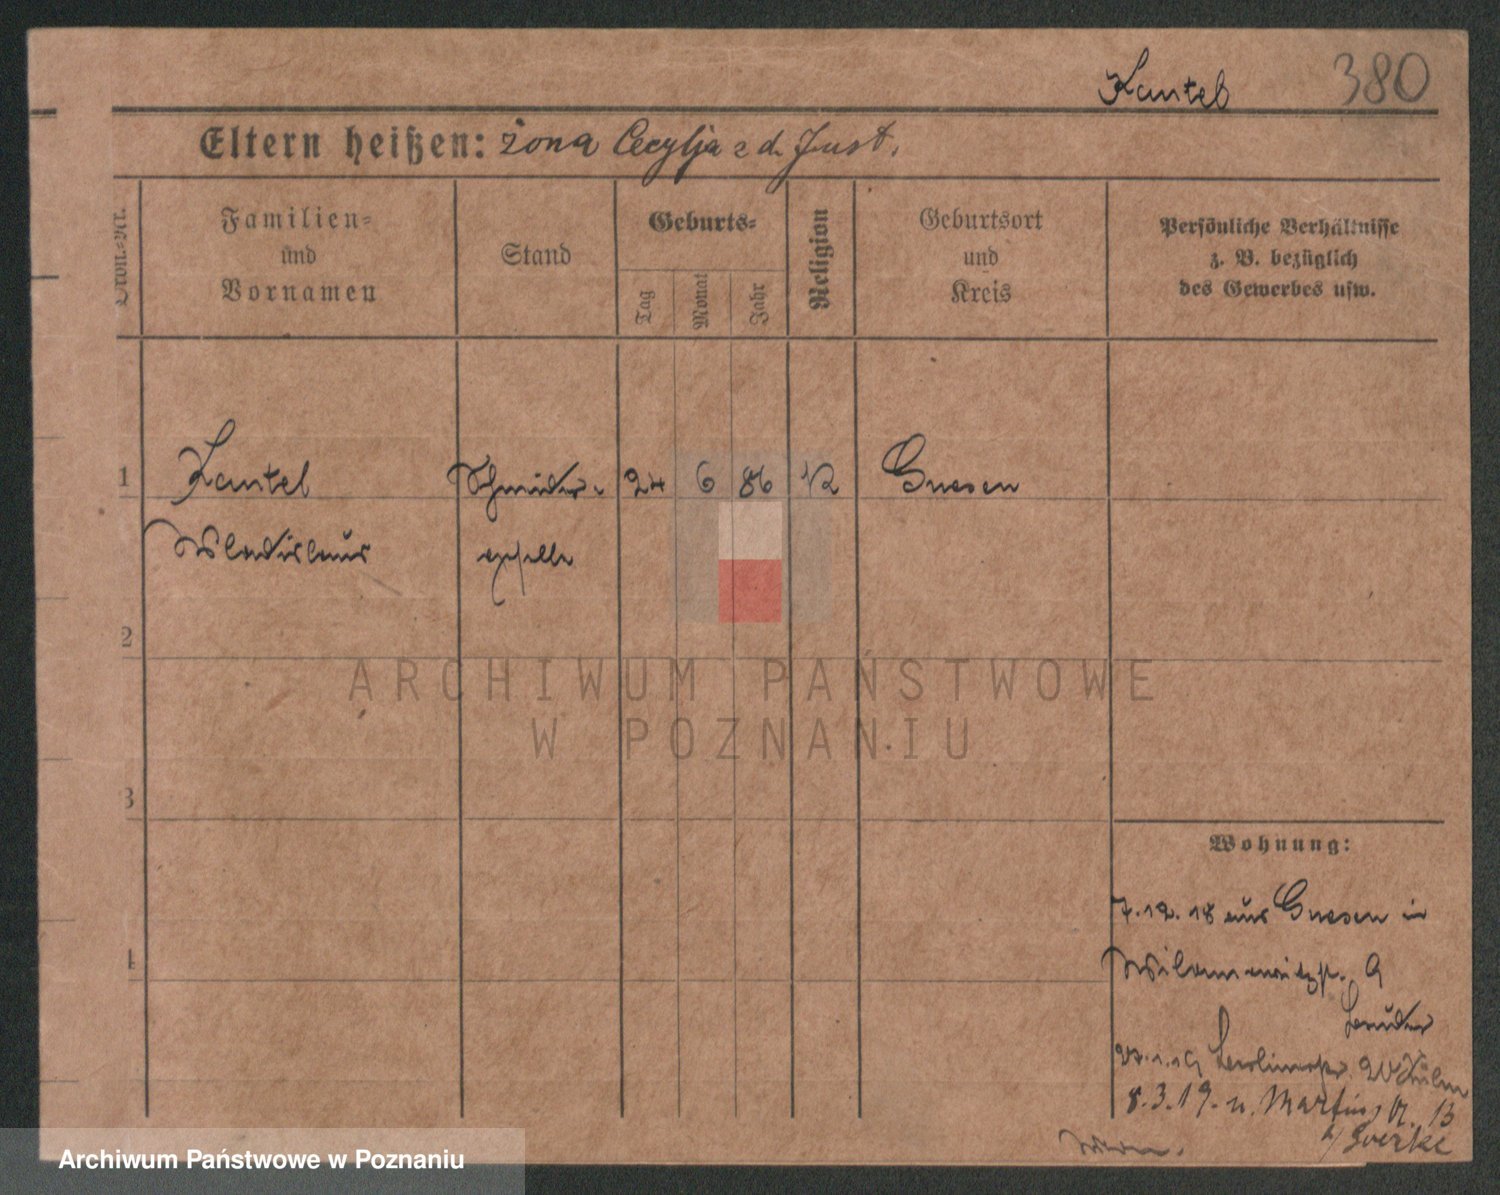 Kantel 380
Eltern heißen: żona Cecylja z d. Just.
Ordn.=Nr.
Familien=
und
Vornamen
Stand
Geburts=
Tag
Monat
Jahr
Religion
Geburtsort
und
Kreis
Persönliche Verhältnisse
z. B. bezüglich
des Gewerbes usw.
1 Kantel Schneider= 24 6 86 Gnesen
Wladislaus geselle
2
ARCHIWUM PAŃSTWOWE
W POZNANIU
3
Wohnung:
7.12.18 aus Gnesen in
4
9
20
8.3.19. n. 13
Archiwum Państwowe w Poznaniu